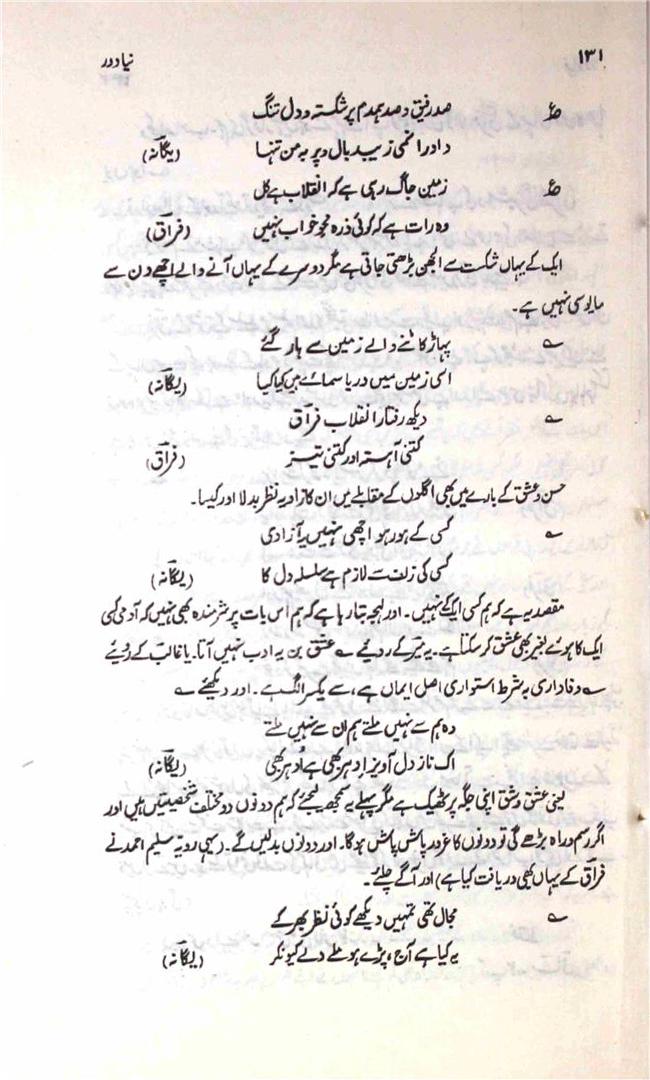 ۱۳۱ نیا دور
؏ صد رفیق و صد ہمدم پر شکستہ و دل تنگ
داورا نمی زیبد بال و پر بہ من تنہا (یگانہ)
؏ زمین جاگ رہی ہے کہ انقلاب ہے کل
وہ رات ہے کہ کوئی ذرہ محو خواب نہیں (فراق)
ایک کے یہاں شکست سے الجھن بڑھتی جاتی ہے مگر دوسرے کے یہاں آنے والے اچھے دن سے
مایوسی نہیں ہے۔
؎ پہاڑ کاٹنے والے زمین سے ہار گئے
اسی زمین میں دریا سمائے ہیں کیا کیا (یگانہ)
؎ دیکھ رفتار انقلاب فراق
کتنی آہستہ اور کتنی تیز (فراق)
حسن و عشق کے بارے میں بھی اگلوں کے مقابلے میں ان کا زاویہ نظر بدلا اور کیسا۔
؎ کسی کے ہو رہو اچھی نہیں یہ آزادی
کسی کی زلف سے لازم ہے سلسلہ دل کا (یگانہ)
مقصد یہ ہے کہ ہم کسی ایک کے نہیں۔ اور لہجہ بتا رہا ہے کہ ہم اس بات پر شرمندہ بھی نہیں کہ آدمی کسی
ایک کا ہوئے بغیر بھی عشق کر سکتا ہے۔ یہ میر کے رویے ؎ عشق بن یہ ادب نہیں آتا۔ یا غالب کے رویے
؎ وفاداری بہ شرط استواری اصل ایماں ہے، سے یکسر الگ ہے۔ اور دیکھئے ؎
وہ ہم سے نہیں ملتے ہم ان سے نہیں ملتے
اک ناز دل آویز ادھر بھی ہے اُدھر بھی (یگانہ)
یعنی عشق وشق اپنی جگہ پر ٹھیک ہے مگر پہلے یہ سمجھ لیجئے کہ ہم دونوں دو مختلف شخصیتیں ہیں اور
اگر رسم و راہ بڑھے گی تو دونوں کا غرور پاش پاش ہوگا۔ اور دونوں بدلیں گے۔ (یہی رویہ سلیم احمد نے
فراق کے یہاں بھی دریافت کیا ہے) اور آگے چلئے۔
؎ مجال تھی تمہیں دیکھے کوئی نظر بھر کے
یہ کیا ہے آج، پڑے ہو ملے دلے کیونکر (یگانہ)